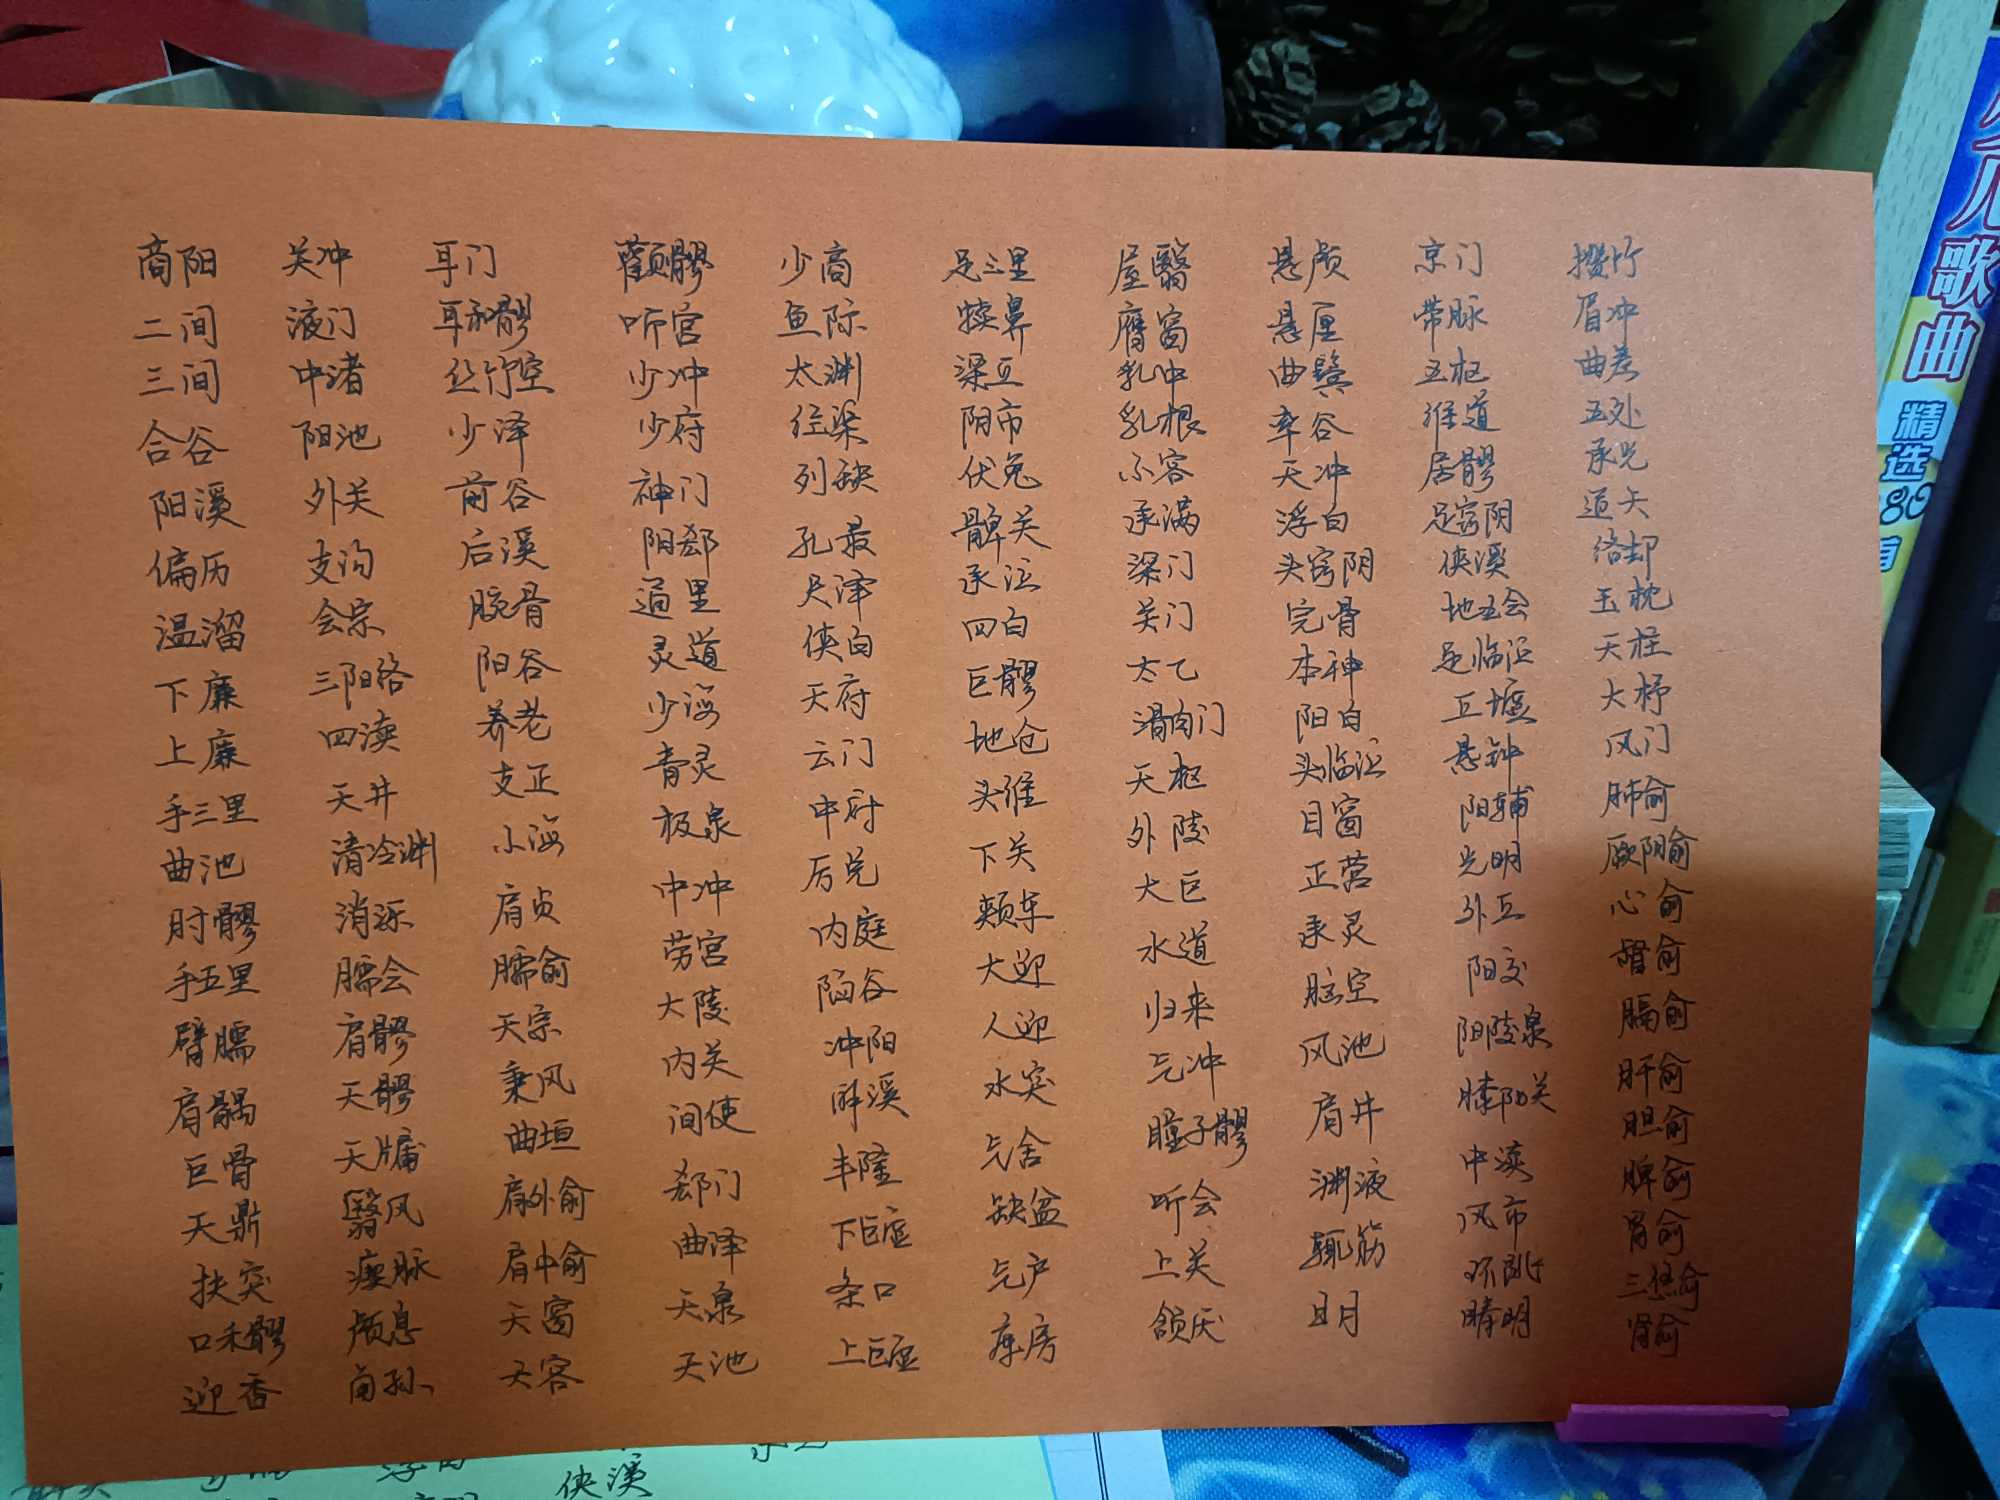 商阳
二间
三间
合谷
阳溪
偏历
温溜
下廉
上廉
手三里
曲池
肘髎
手五里
臂臑
肩髃
巨骨
天鼎
扶突
口禾髎
迎香
关冲
液门
中渚
阳池
外关
支沟
会宗
三阳络
四渎
天井
清冷渊
消泺
臑会
肩髎
天髎
天牖
翳风
瘈脉
颅息
角孙
耳门
耳和髎
丝竹空
少泽
前谷
后溪
腕骨
阳谷
养老
支正
小海
肩贞
臑俞
天宗
秉风
曲垣
肩外俞
肩中俞
天窗
天容
颧髎
听宫
少冲
少府
神门
阴郄
通里
灵道
少海
青灵
极泉
中冲
劳宫
大陵
内关
间使
郄门
曲泽
天泉
天池
少商
鱼际
太渊
经渠
列缺
孔最
尺泽
侠白
天府
云门
中府
厉兑
内庭
陷谷
冲阳
解溪
丰隆
下巨虚
条口
上巨虚
足三里
犊鼻
梁丘
阴市
伏兔
髀关
承泣
四白
巨髎
地仓
头维
下关
颊车
大迎
人迎
水突
气舍
缺盆
气户
库房
屋翳
膺窗
乳中
乳根
不容
承满
梁门
关门
太乙
滑肉门
天枢
外陵
大巨
水道
归来
气冲
瞳子髎
听会
上关
颔厌
悬颅
悬厘
曲鬓
率谷
天冲
浮白
头窍阴
完骨
本神
阳白
头临泣
目窗
正营
承灵
脑空
风池
肩井
渊液
辄筋
日月
京门
带脉
五枢
维道
居髎
足窍阴
侠溪
地五会
足临泣
丘墟
悬钟
阳辅
光明
外丘
阳交
阳陵泉
膝阳关
中渎
风市
环跳
睛明
攒竹
眉冲
曲差
五处
承光
通天
络却
玉枕
天柱
大杼
风门
肺俞
厥阴俞
心俞
督俞
膈俞
肝俞
胆俞
脾俞
胃俞
三焦俞
肾俞
儿歌曲
精选
侠溪